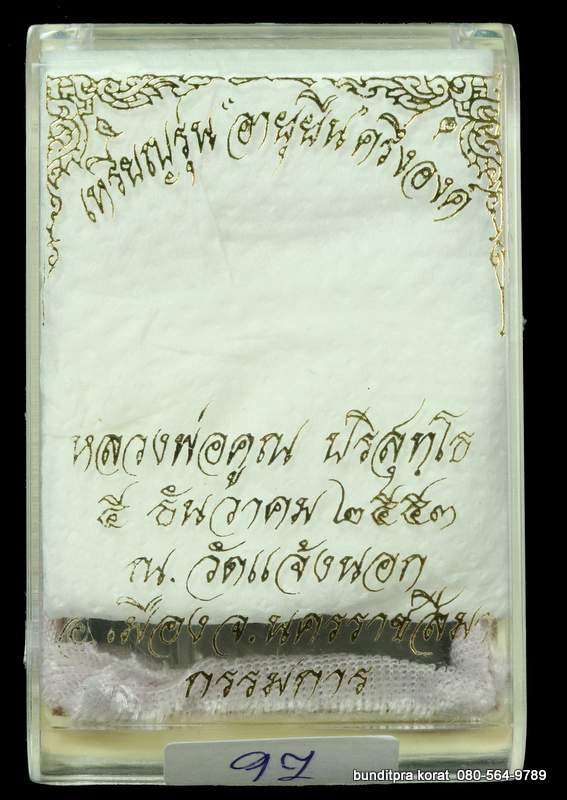 เหรียญรุ่น "อายุยืน" ครึ่งองค์
หลวงพ่อคูณ ปริสุทโธ
๕ ธันวาคม ๒๕๕๓
ณ. วัดแจ้งนอก
อ.เมือง จ.นครราชสีมา
กรรมการ
97
bunditpra korat 080-564-9789